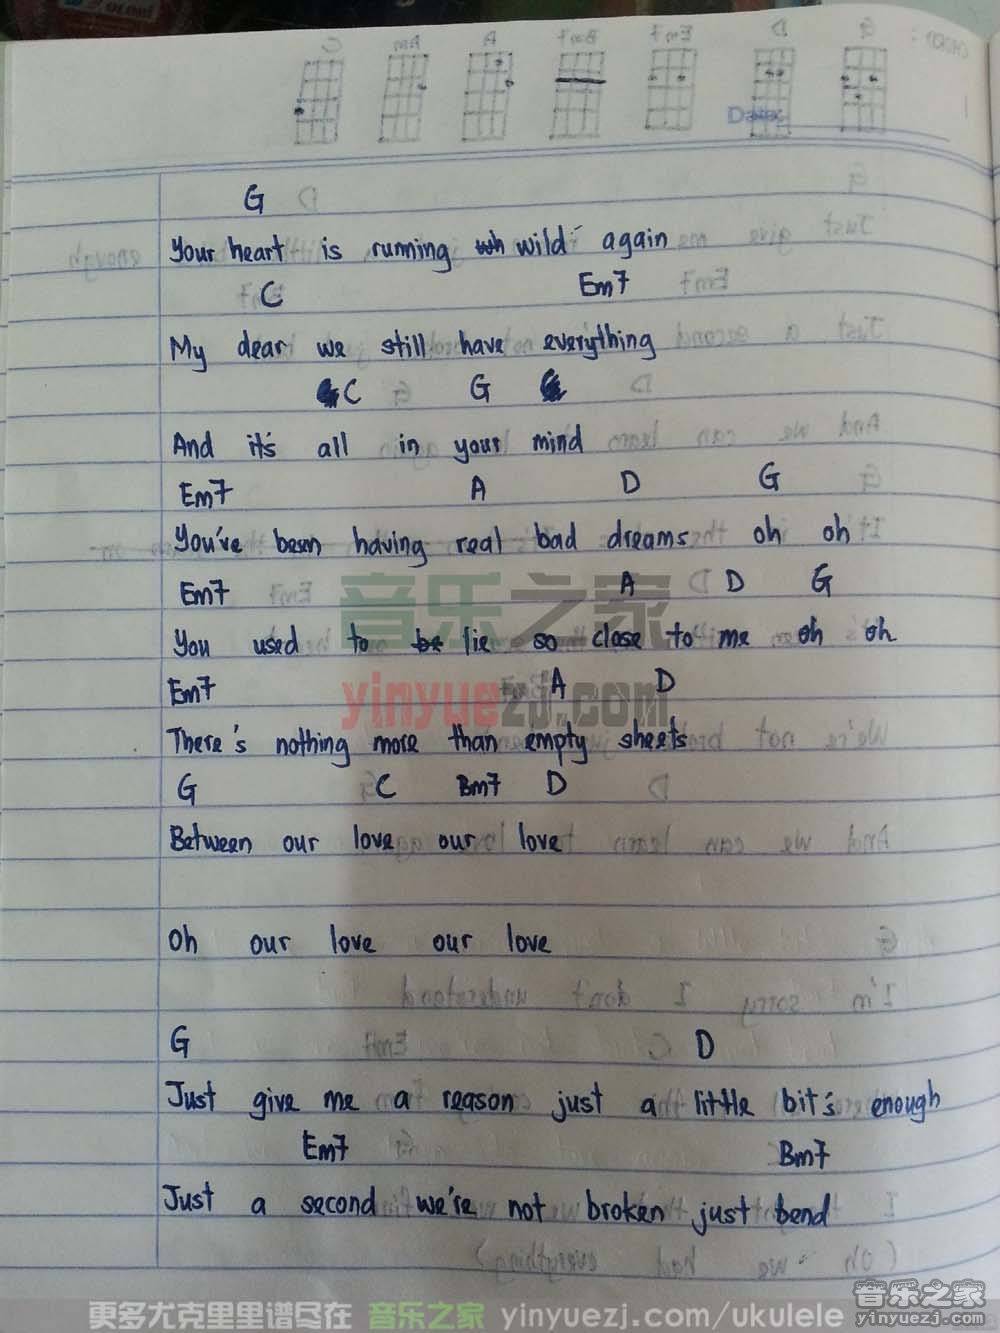 CHORD: G D Em7 Bm7 A Am C
Date:
G
Your heart is running wild again
C Em7
My dear we still have everything
C G
And it's all in your mind
Em7 A D G
You've been having real bad dreams oh oh
Em7 A D G
You used to lie so close to me oh oh
Em7 A D
There's nothing more than empty sheets
G C Bm7 D
Between our love our love
Oh our love our love
G D
Just give me a reason just a little bit's enough
Em7 Bm7
Just a second we're not broken just bend
音乐之家
yinyuezj.com
更多尤克里里谱尽在 音乐之家 yinyuezj.com/ukulele
音乐之家
yinyuezj.com